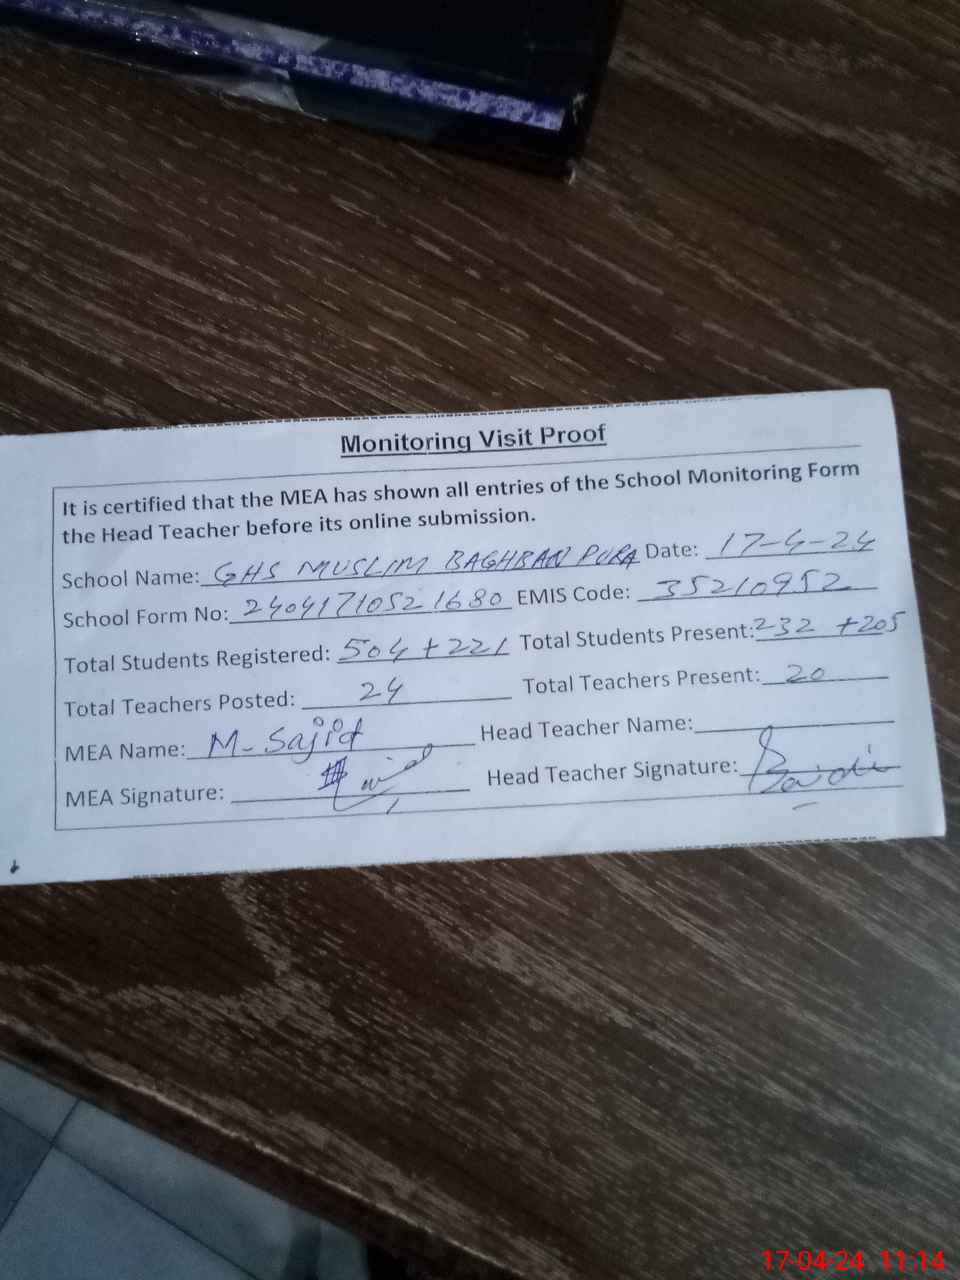 Monitoring Visit Proof
It is certified that the MEA has shown all entries of the School Monitoring Form
the Head Teacher before its online submission.
School Name: GHS MUSLIM BAGHBAN PURA Date: 17-4-24
School Form No: 24041710521680 EMIS Code: 35210952
Total Students Registered: 504+221 Total Students Present: 232 +205
Total Teachers Posted: 24 Total Teachers Present: 20
MEA Name: M-Sajid Head Teacher Name:
MEA Signature: Head Teacher Signature:
17-04-24 11:14